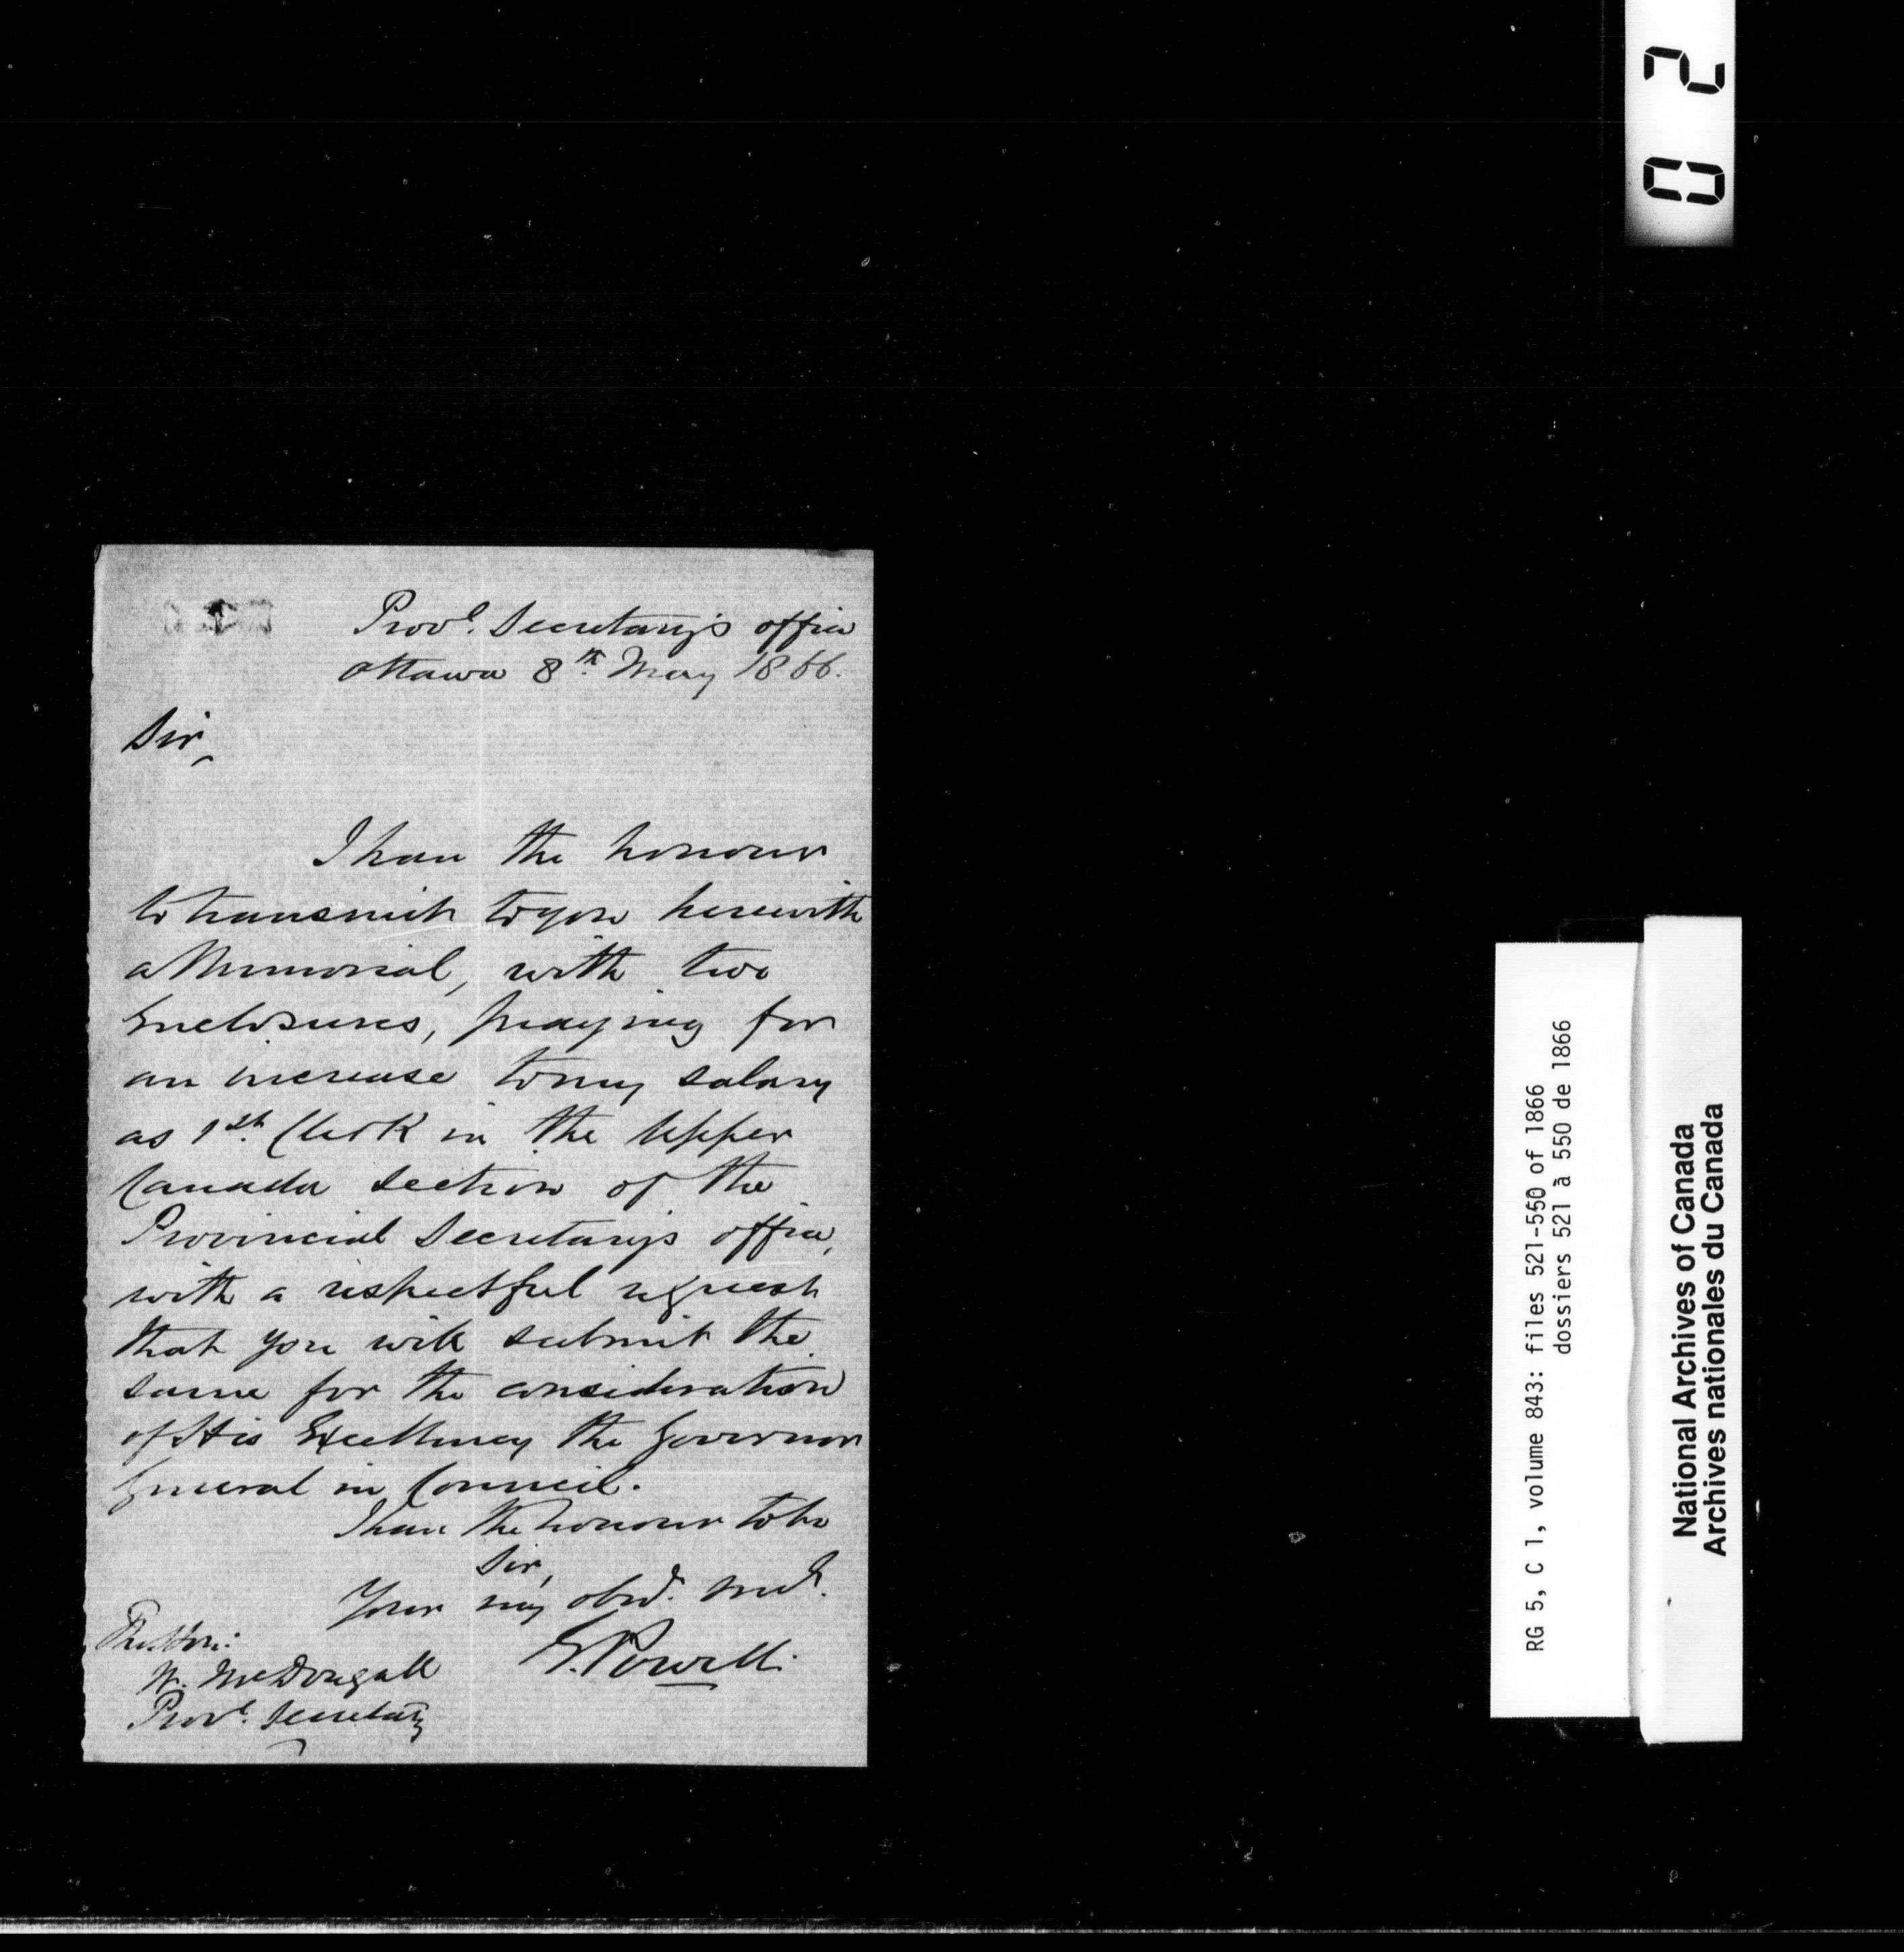 Provl. Secretary's office
Ottawa 8th May 1866.
Sir,
I have the honour
to transmit to you herewith
a Memorial, with two
Enclosures, praying for
an increase to my salary
as 1st. Clerk in the Upper
Canada Section of the
Provincial Secretary's office,
with a respectful request
that you will submit the
same for the consideration
of His Excellency the Governor
General in Council.
I have the honour to be
Sir,
Your
G. Powell.
The Hon:
W. McDougall
Provl. Secretary
02
RG 5, C 1, volume 843: files 521-550 of 1866
dossiers 521 à 550 de 1866
National Archives of Canada
Archives nationales du Canada